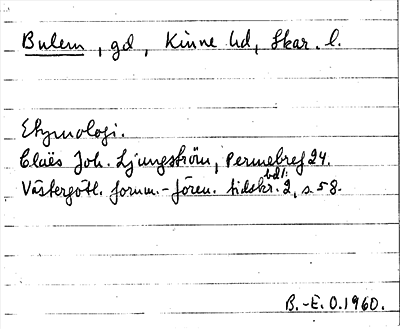 Bulem, gd, Kinne hd, Skar. l.
Etymologi.
Claës Joh. Ljungström, Permebref 24.
Västergötl. fornm.-fören. tidskr. bd 1: 2, s 58.
B.-E. O. 1960.